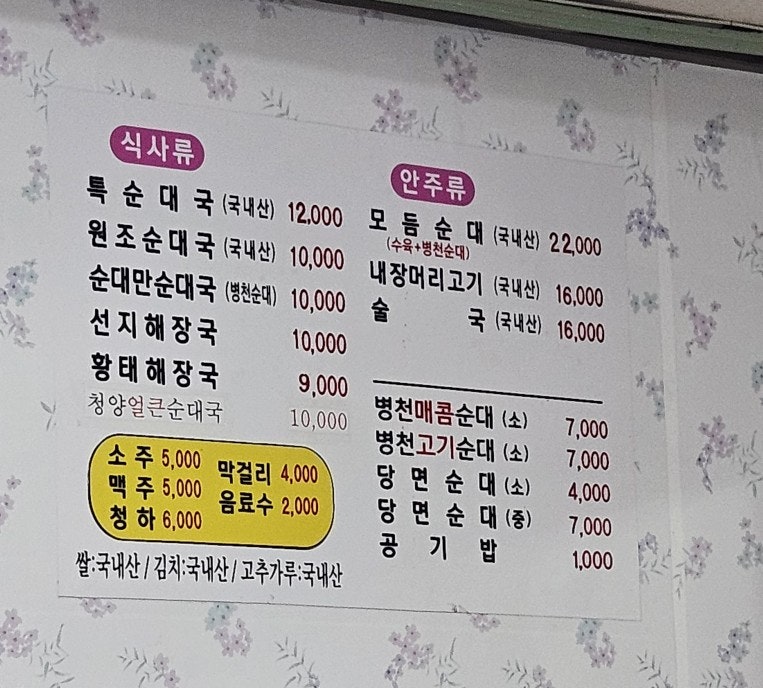 식사류
특순대국 (국내산) 12,000
원조순대국 (국내산) 10,000
순대만순대국 (병천순대) 10,000
선지해장국 10,000
황태해장국 9,000
청양얼큰순대국 10,000
소주 5,000 막걸리 4,000
맥주 5,000 음료수 2,000
청하 6,000
쌀:국내산 / 김치:국내산 / 고추가루:국내산
안주류
모듬순대 (국내산) 22,000
(수육+병천순대)
내장머리고기 (국내산) 16,000
술국 (국내산) 16,000
병천매콤순대 (소) 7,000
병천고기순대 (소) 7,000
당면순대 (소) 4,000
당면순대 (중) 7,000
공기밥 1,000